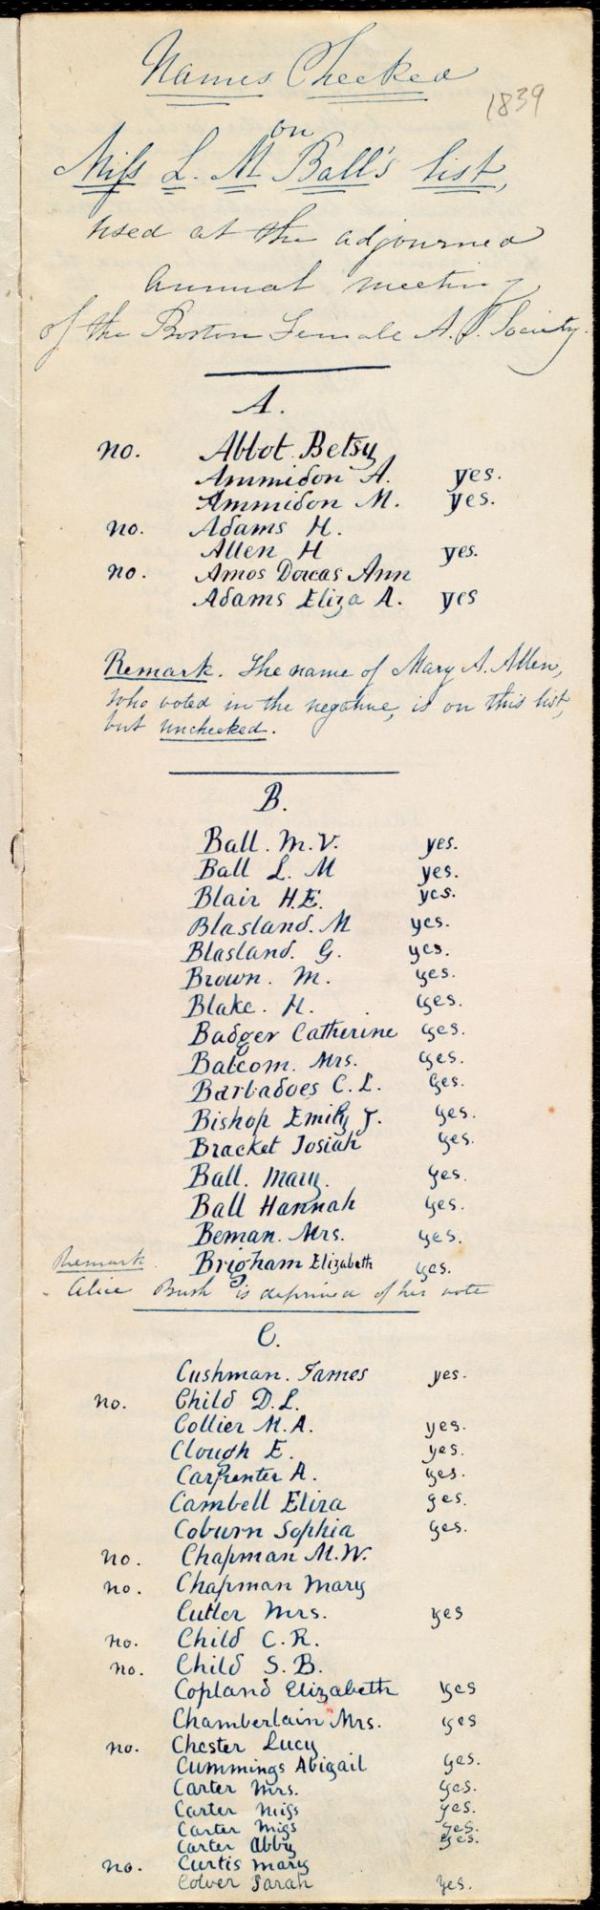 Names Checked
1839
on
Miss L. M. Ball's list,
used at the adjourned
annual meeting
of the Boston Female A. S. Society.
A.
no. Abbot Betsy
Ammidon A. yes.
Ammidon M. yes.
no. Adams H.
Allen H yes.
no. Amos Dorcas Ann
Adams Eliza A. yes
Remark. The name of Mary A. Allen,
who voted in the negative, is on this list,
but unchecked.
B.
Ball. M. V. yes.
Ball L. M yes.
Blair H. E. yes.
Blasland. M yes.
Blasland. G. yes.
Brown. M. yes.
Blake. H. yes.
Badger Catherine yes.
Balcom. Mrs. yes.
Barbadoes C. L. yes.
Bishop Emily J. yes.
Bracket Josiah yes.
Ball. Mary. yes.
Ball Hannah yes.
Beman. Mrs. yes.
Remark. Brigham Elizabeth yes.
Alice Bush is deprived of her vote
C.
Cushman. James yes.
no. Child D. L.
Collier M. A. yes.
Clough E. yes.
Carpenter A. yes.
Cambell Eliza yes.
Coburn Sophia yes.
no. Chapman M. W.
no. Chapman Mary
Cutler Mrs. yes
no. Child C. R.
no. Child S. B.
Copland Elizabeth yes
Chamberlain Mrs. yes
no. Chester Lucy
Cummings Abigail yes.
Carter Mrs. yes.
Carter Miss yes.
Carter Miss yes.
Carter Abby yes.
no. Curtis Mary
Colver Sarah yes.